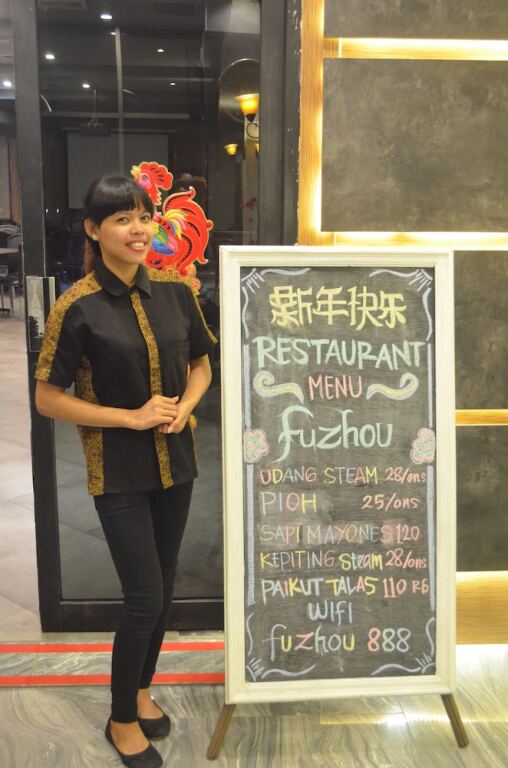 新年快乐
RESTAURANT
MENU
fuzhou
UDANG STEAM 28/ons
PIOH 25/ons
SAPI MAYONES 120
KEPITING Steam 28/ons
PAIKUT TALAS 110 RB
WIFI
fuzhou 888